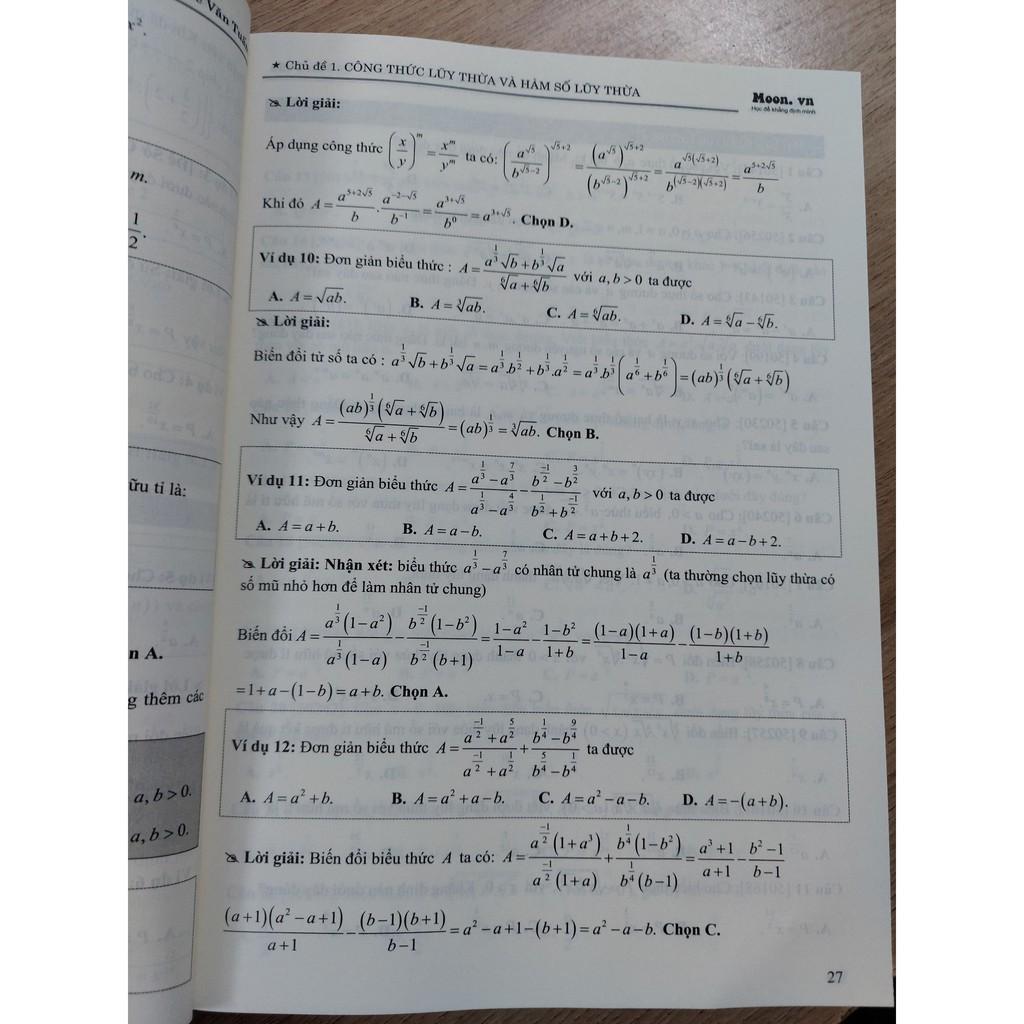 Văn Tuấn
x².
m.
1/2.
ữu tỉ là:
n A.
g thêm các
a, b > 0.
a, b > 0.
★ Chủ đề 1. CÔNG THỨC LŨY THỪA VÀ HÀM SỐ LŨY THỪA
Moon. vn
Học để khẳng định mình
Lời giải:
Áp dụng công thức (x/y)^m = x^m/y^m ta có: (a^√5/b^(√5−2))^(√5+2) = (a^√5)^(√5+2)/(b^(√5−2))^(√5+2) = a^(√5(√5+2))/b^((√5−2)(√5+2)) = a^(5+2√5)/b
Khi đó A = a^(5+2√5)/b . a^(−2−√5)/b^(−1) = a^(3+√5)/b^0 = a^(3+√5). Chọn D.
Ví dụ 10: Đơn giản biểu thức : A = (a^(1/3)√b + b^(1/3)√a)/(⁶√a + ⁶√b) với a, b > 0 ta được
A. A = √ab. B. A = ³√ab. C. A = ⁶√ab. D. A = ⁶√a − ⁶√b.
Lời giải:
Biến đổi tử số ta có : a^(1/3)√b + b^(1/3)√a = a^(1/3).b^(1/2) + b^(1/3).a^(1/2) = a^(1/3).b^(1/3)(a^(1/6) + b^(1/6)) = (ab)^(1/3)(⁶√a + ⁶√b)
Như vậy A = (ab)^(1/3)(⁶√a + ⁶√b)/(⁶√a + ⁶√b) = (ab)^(1/3) = ³√ab. Chọn B.
Ví dụ 11: Đơn giản biểu thức A = (a^(1/3) − a^(7/3))/(a^(1/3) − a^(4/3)) − (b^(−1/2) − b^(3/2))/(b^(1/2) + b^(−1/2)) với a, b > 0 ta được
A. A = a + b. B. A = a − b. C. A = a + b + 2. D. A = a − b + 2.
Lời giải: Nhận xét: biểu thức a^(1/3) − a^(7/3) có nhân tử chung là a^(1/3) (ta thường chọn lũy thừa có
số mũ nhỏ hơn để làm nhân tử chung)
Biến đổi A = a^(1/3)(1 − a²)/a^(1/3)(1 − a) − b^(−1/2)(1 − b²)/b^(−1/2)(b + 1) = (1 − a²)/(1 − a) − (1 − b²)/(1 + b) = (1 − a)(1 + a)/(1 − a) − (1 − b)(1 + b)/(1 + b)
= 1 + a − (1 − b) = a + b. Chọn A.
Ví dụ 12: Đơn giản biểu thức A = (a^(−1/2) + a^(5/2))/(a^(−1/2) + a^(1/2)) + (b^(1/4) − b^(9/4))/(b^(5/4) − b^(1/4)) ta được
A. A = a² + b. B. A = a² + a − b. C. A = a² − a − b. D. A = −(a + b).
Lời giải: Biến đổi biểu thức A ta có: A = a^(−1/2)(1 + a³)/a^(−1/2)(1 + a) + b^(1/4)(1 − b²)/b^(1/4)(b − 1) = (a³ + 1)/(a + 1) − (b² − 1)/(b − 1)
(a + 1)(a² − a + 1)/(a + 1) − (b − 1)(b + 1)/(b − 1) = a² − a + 1 − (b + 1) = a² − a − b. Chọn C.
27